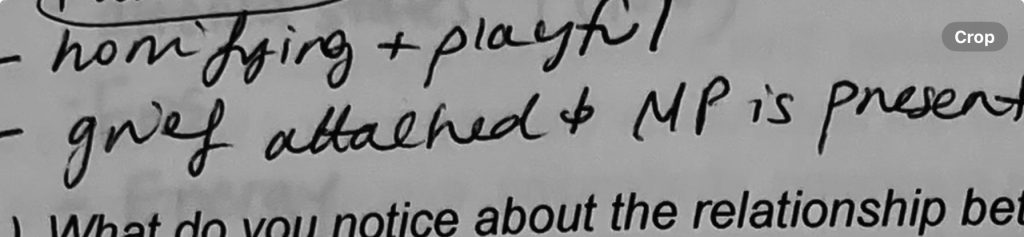 - horrifying + playful
- grief attached to MP is present
) What do you notice about the relationship bet
Crop